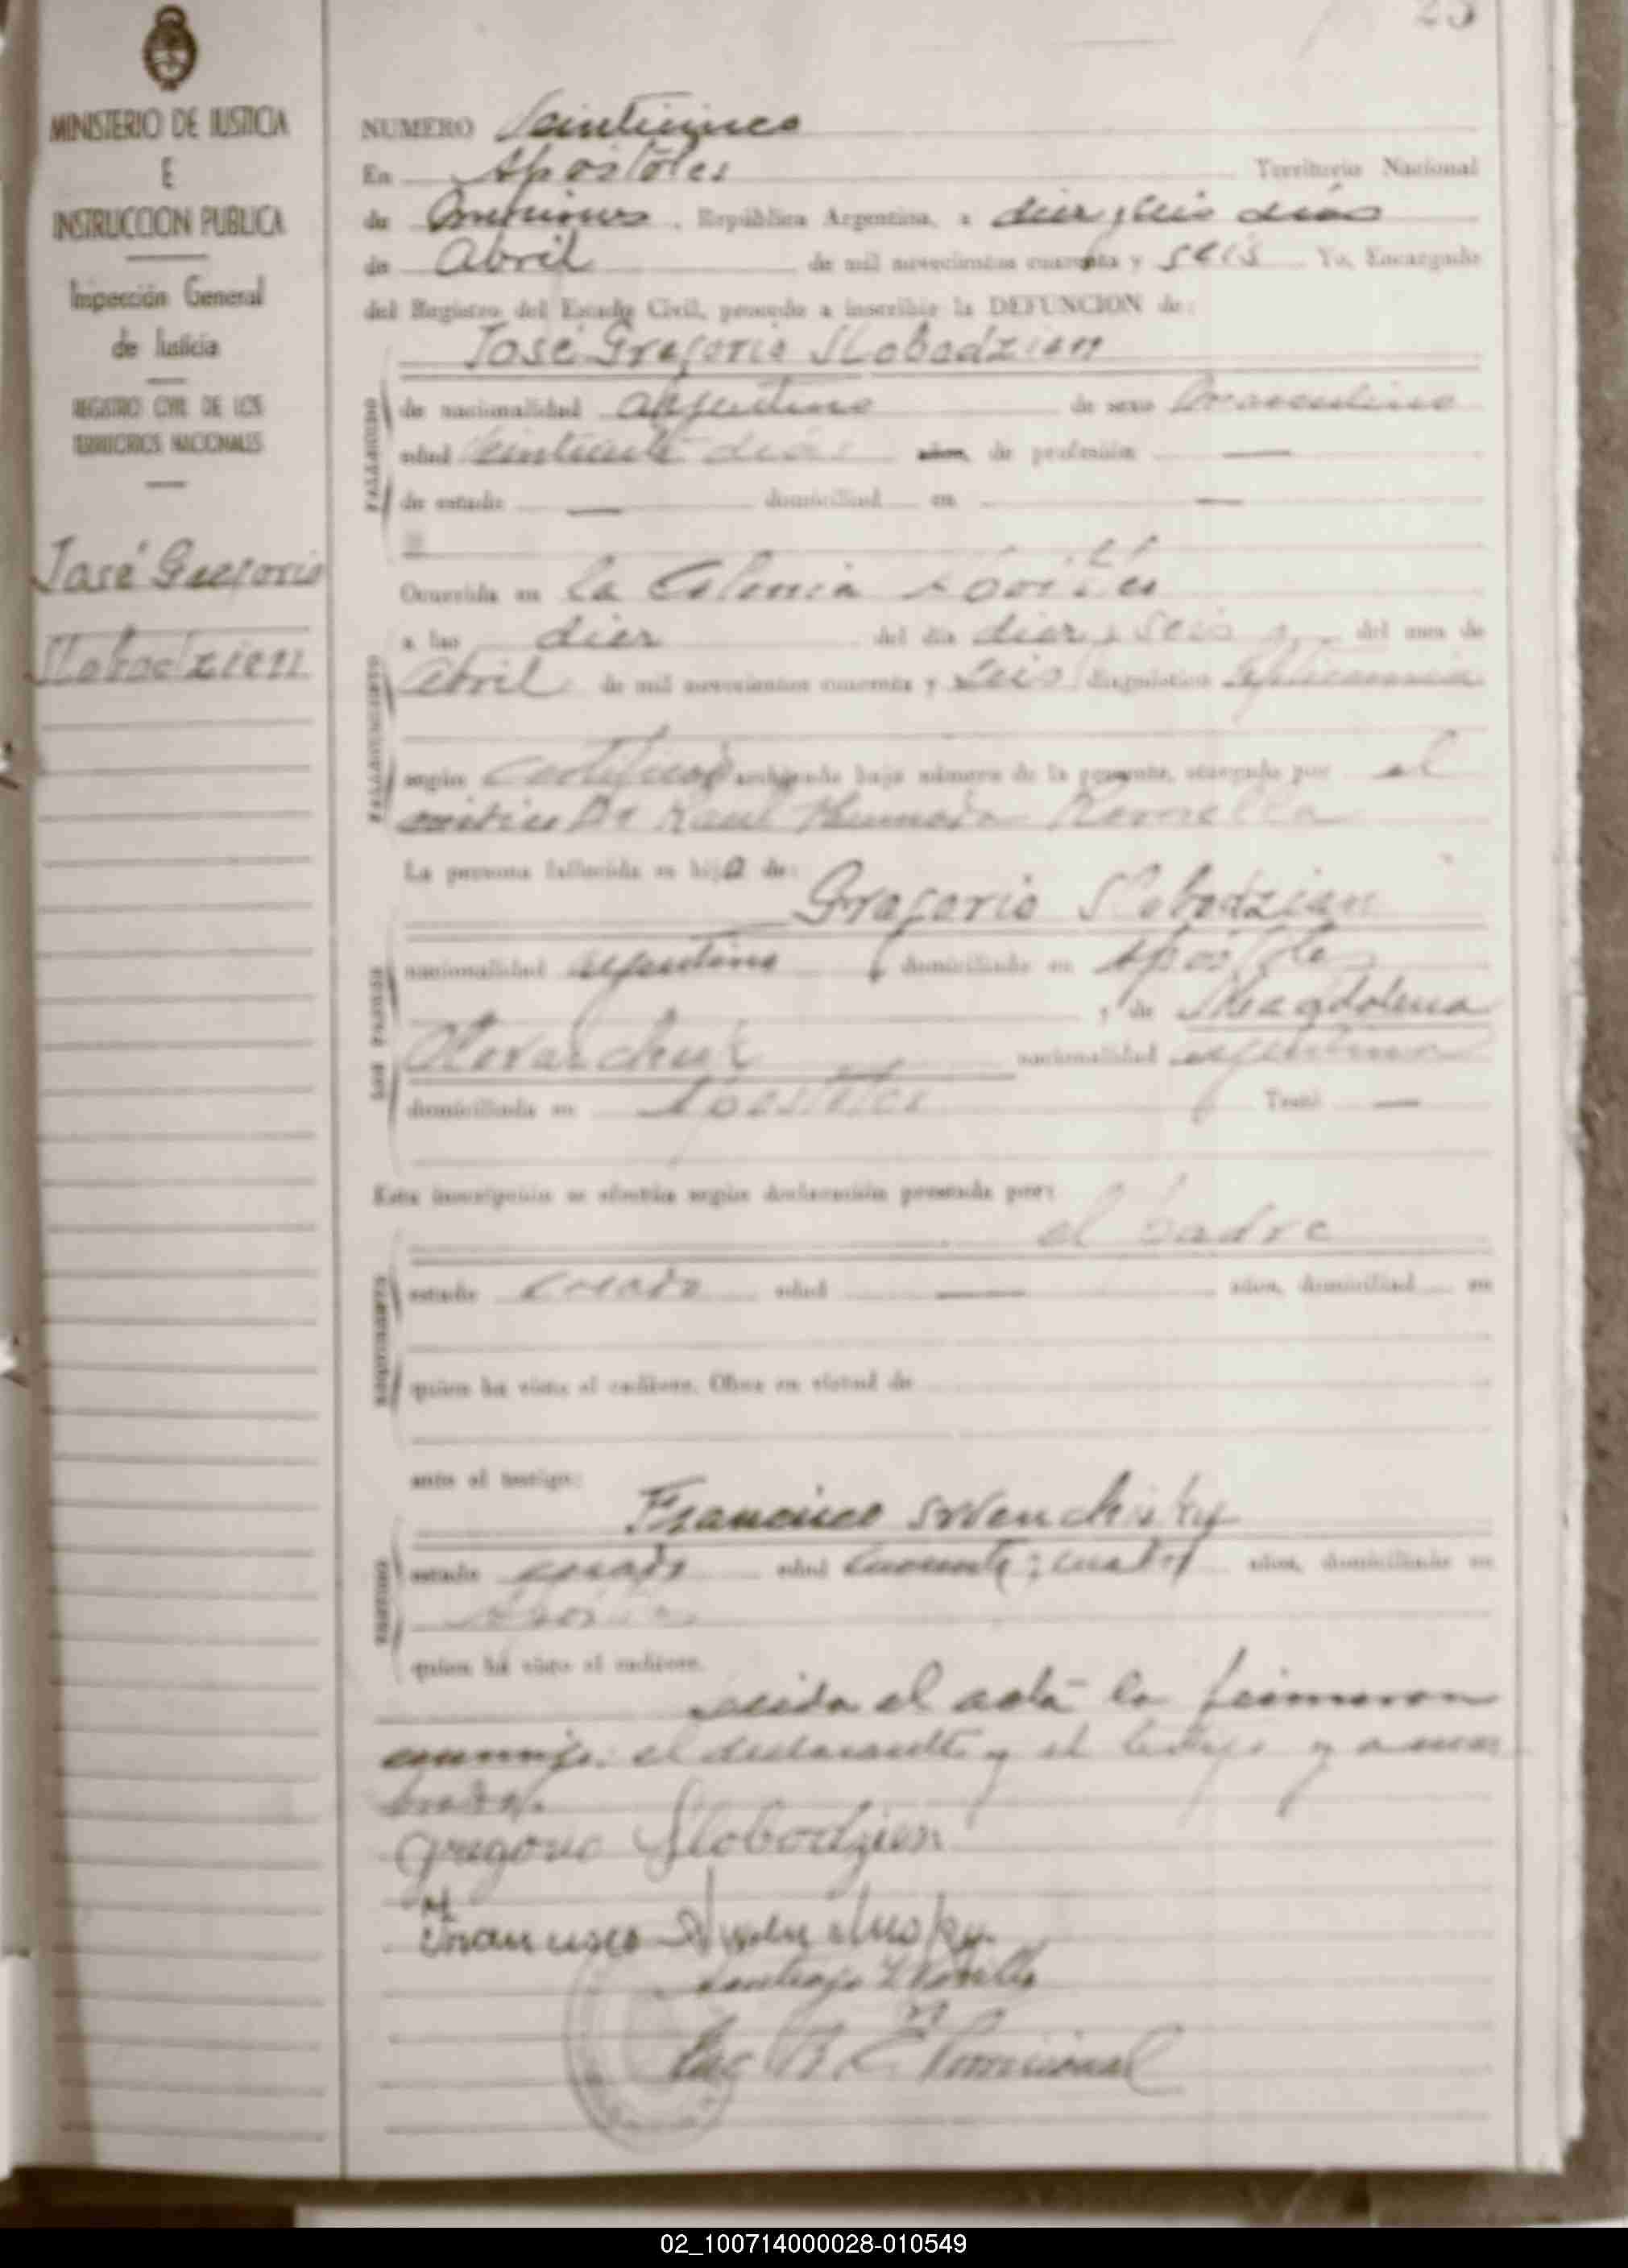 25
MINISTERIO DE JUSTICIA
E
INSTRUCCION PUBLICA
Inspección General
de Justicia
REGISTRO CIVIL DE LOS
TERRITORIOS NACIONALES
José Gregorio
Slobodzien
NUMERO Veinticinco
En Apóstoles Territorio Nacional
de Misiones, República Argentina, a diez y seis días
de Abril de mil novecientos cuarenta y seis Yo, Encargado
del Registro del Estado Civil, procedo a inscribir la DEFUNCION de:
José Gregorio Slobodzien
FALLECIDO
de nacionalidad argentino de sexo masculino
edad días años, de profesión —
de estado — domiciliad en —
FALLECIMIENTO
Ocurrida en la Colonia Apóstoles
a las diez del día diez y seis del mes de
abril de mil novecientos cuarenta y seis diagnóstico
según certificado archivado bajo número de la presente, otorgado por el
médico Dr Raul
La persona fallecida es hijo de:
Gregorio Slobodzian
LOS PADRES
nacionalidad argentino domiciliado en Apóstoles
y de Magdalena
nacionalidad argentina
domiciliada en Apóstoles Testó —
Esta inscripción se efectúa según declaración prestada por:
el padre
REQUIRENTE
estado casado edad — años, domiciliad en
quien ha visto el cadáver. Obra en virtud de
ante el testigo:
Francisco
TESTIGO
estado casado edad cuarenta y cuatro años, domiciliado en
Apóstoles
quien ha visto el cadáver.
Leída el acta la firmaron
conmigo el declarante y el testigo y a
Gregorio Slobodzien
Francisco
Santiago
Enc R. C. Provisional
02_100714000028-010549